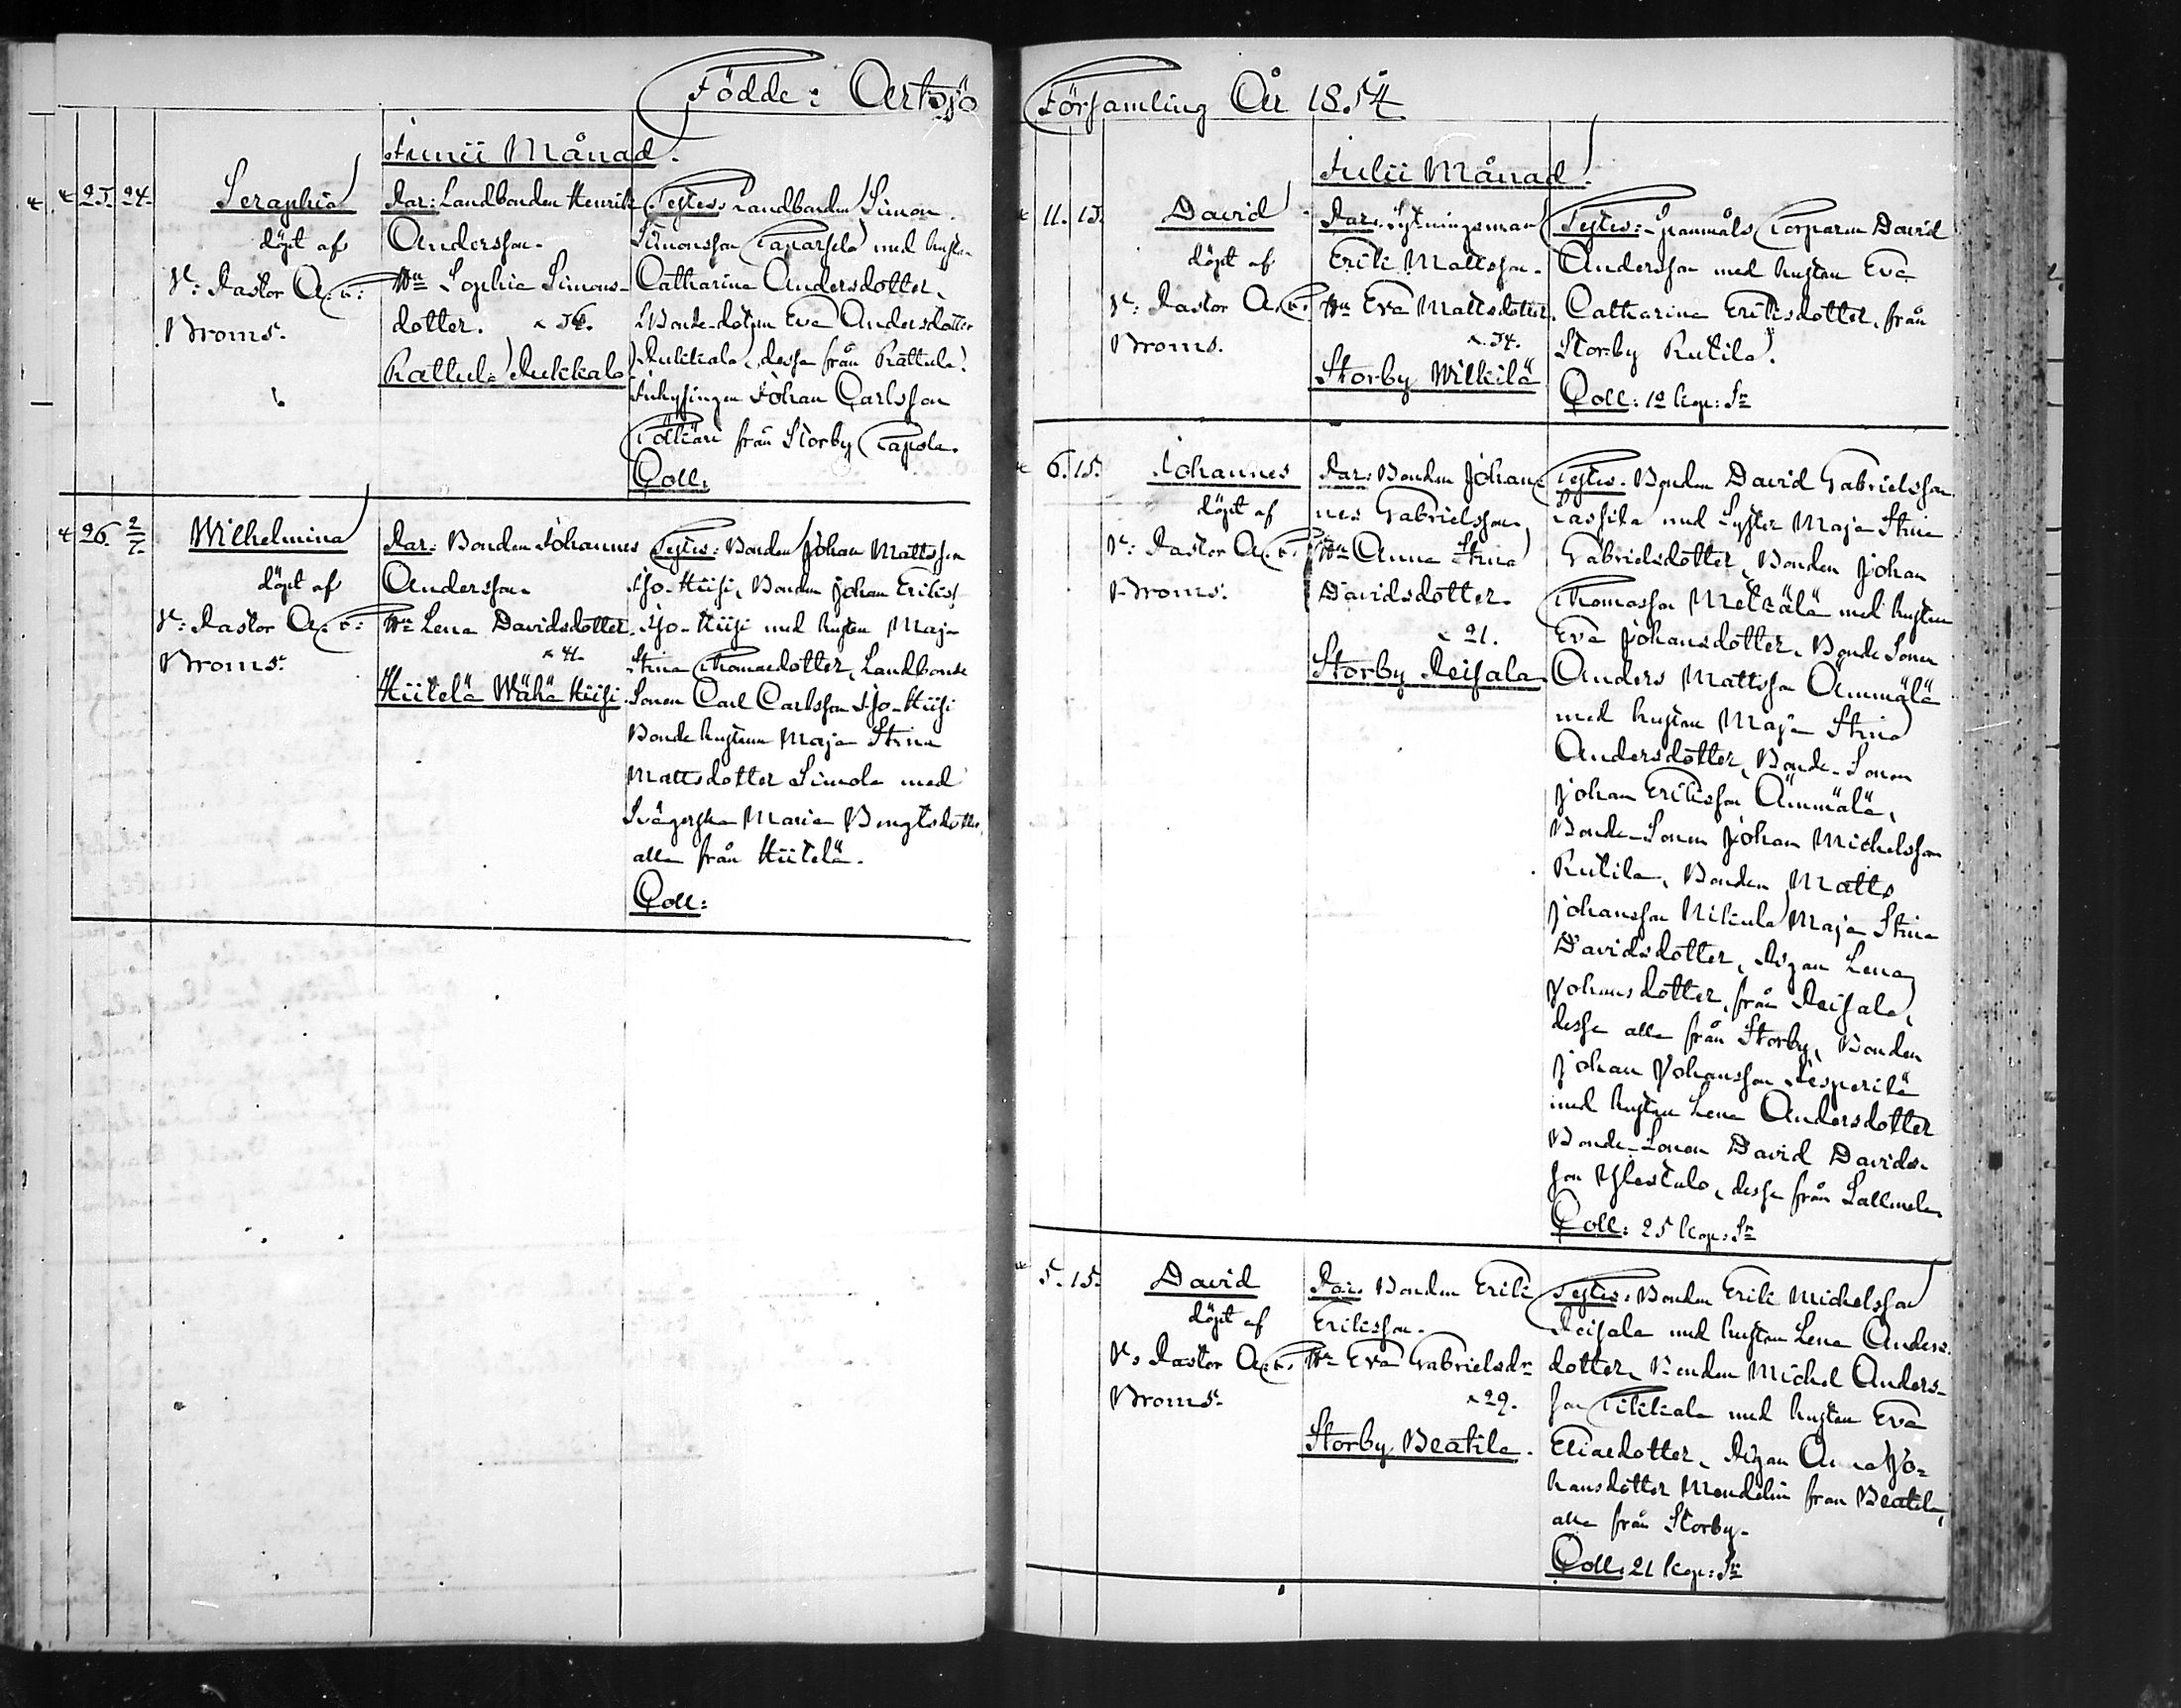 Födde i Artsjö
Junii Månad.
25. 24.
Seraphia
döpt af
V: Pastor A. F:
Broms.
Par: Landbonden Henrik
Andersson.
Hu Sophia Simons-
dotter.
Rattula Pukkala
Testes: Landbonden Simon
Simonsson med hustru
Catharina Andersdotter,
Bonde-dottren Eva Andersdotter
Pukkala, dessa från Rattula.
Johan Carlsson
från Storby Tapola.
Coll:
26. 2/7.
Wilhelmina
döpt af
V: Pastor A. F:
Broms.
Par: Bonden Johannes
Andersson
Hu Lena Davidsdotter.
41.
Hiitelä Wähä Hiisi.
Testes: Bonden Johan Mattsson
Iso-Hiisi, Bonden Johan Eriks:
Iso-Hiisi med hustru Maja
Stina Thomasdotter, Landbonde
Sonen Carl Carlsson Iso-Hiisi
Bonde hustrun Maja Stina
Mattsdotter Simola med
Svägerska Maria Bengtsdotter,
alla från Hiitelä.
Coll:
Församling År 1854
Julii Månad.
11. 15.
David
döpt af
V: Pastor A. F:
Broms.
Par: Sytningsman
Erik Mattsson.
Hu Eva Mattsdotter.
Storby Wilkilä
Testes: Spanmåls Torparen David
Andersson med hustru Eva
Catharina Eriksdotter, från
Storby Rutila.
Coll: 10 kop: Sr
6. 15.
Johannes
döpt af
V: Pastor A. F:
Broms.
Par: Bonden Johan-
nes Gabrielsson,
Hu Anna Stina
Davidsdotter.
21.
Storby Peisala
Testes: Bonden David Gabrielsson
Lassila med Syster Maja Stina
Gabrielsdotter, Bonden Johan
Thomasson Metzälä med hustru
Eva Johansdotter, Bonde Sonen
Anders Mattsson Ämmälä
med hustru Maja Stina
Andersdotter, Bonde-Sonen
Johan Eriksson Ämmälä,
Bonde-Sonen Johan Michelsson
Rutila, Bonden Matts
Johansson Nikula Maja Stina
Davidsdotter, Pigan Lena
Johansdotter, från Peisala,
dessa alla från Storby, Bonden
Johan Johansson Kesperilä
med hustru Lena Andersdotter
Bonde-Sonen David Davids-
son Ylestalo, dessa från Sallmela
Coll: 25 kop: Sr
5. 15.
David
döpt af
V: Pastor A. F:
Broms.
Par: Bonden Erik
Eriksson.
Hu Eva Gabrielsdr
29.
Storby Beatila.
Testes: Bonden Erik Michelsson
Peisala med hustru Lena Anders-
dotter, Bonden Michel Anders-
son med hustru Eva
Eliasdotter, Pigan Anna Jo-
hansdotter Mondelin från Beatila,
alla från Storby.
Coll: 21 kop: Sr